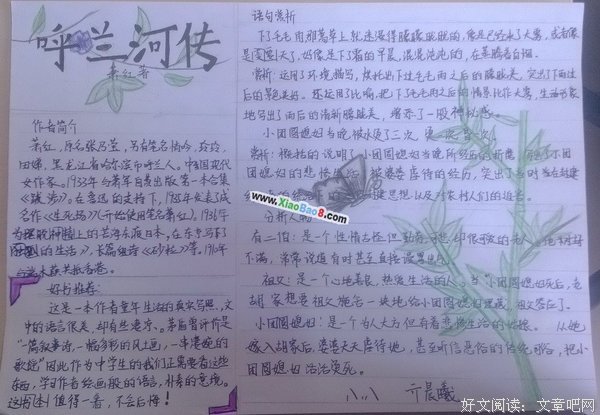 呼兰河传
萧红著
作者简介
萧红,原名张乃莹,另有笔名悄吟,玲玲,
田娣,黑龙江省哈尔滨市呼兰人。中国现代
女作家。1933年与萧军自费出版第一本合集
《跋涉》。在鲁迅的支持下,1935年发表了成
名作《生死场》(开始使用笔名萧红)。1936年
为摆脱精神上的苦洋东渡日本,在东京写下了
的生活》,长篇组诗《砂粒》等。1940年
与端木蕻共抵香港。
好书推荐:
这是一本作者童年生活的真实写照,文
中的语言很美,却有些凄凉。茅盾曾评价是
“一篇叙事诗,一幅多彩的风土画,一串凄婉的
歌谣”因此作为中学生的我们正需要看这些
东西,学习作者绘画般的语言,朴素的意境。
这书还值得一看,不会后悔!
语句赏析
下了毛毛雨,那蒿草上就迷漫得朦朦胧胧的,像是已经来了大雾,或者像
是要变天了,好像是下了霜的早晨,混混沌沌的,在蒸腾着白烟。
赏析:运用了环境描写,烘托出下过毛毛雨之后的朦胧美,突出了下雨过
后的景色美好。还运用了比喻,把下了毛毛雨之后的情景比作大雾,生动形象
地写出了雨后的清新朦胧美,增添了一股神秘感。
小团圆媳妇当晚被水烫了三次,烫一次,昏一次。
赏析:概括的说明了小团圆媳妇当晚所经历的折磨,小团
圆媳妇的悲惨生活,被婆婆虐待的经历,突出了当时
思想以及对农村人们的迫害。
www.XiaoBao8.com
分析人物
有二伯:是一个性情古怪
不满,常常说道有时甚至直接谩骂
祖父:是一个心地善良,热爱生活的人。当“小团圆媳妇死后,老
胡家想要祖父施活一块地给小团圆媳妇埋葬,祖父答应了。
小团圆媳妇:是一个为人大方但有着悲惨生活的姑娘。从她
嫁入胡家后,婆婆天天虐待她,甚至听信愚俗的传统习俗,把小
团圆媳妇活活烫死。
八、八
亓晨曦
好文阅读:文章吧网